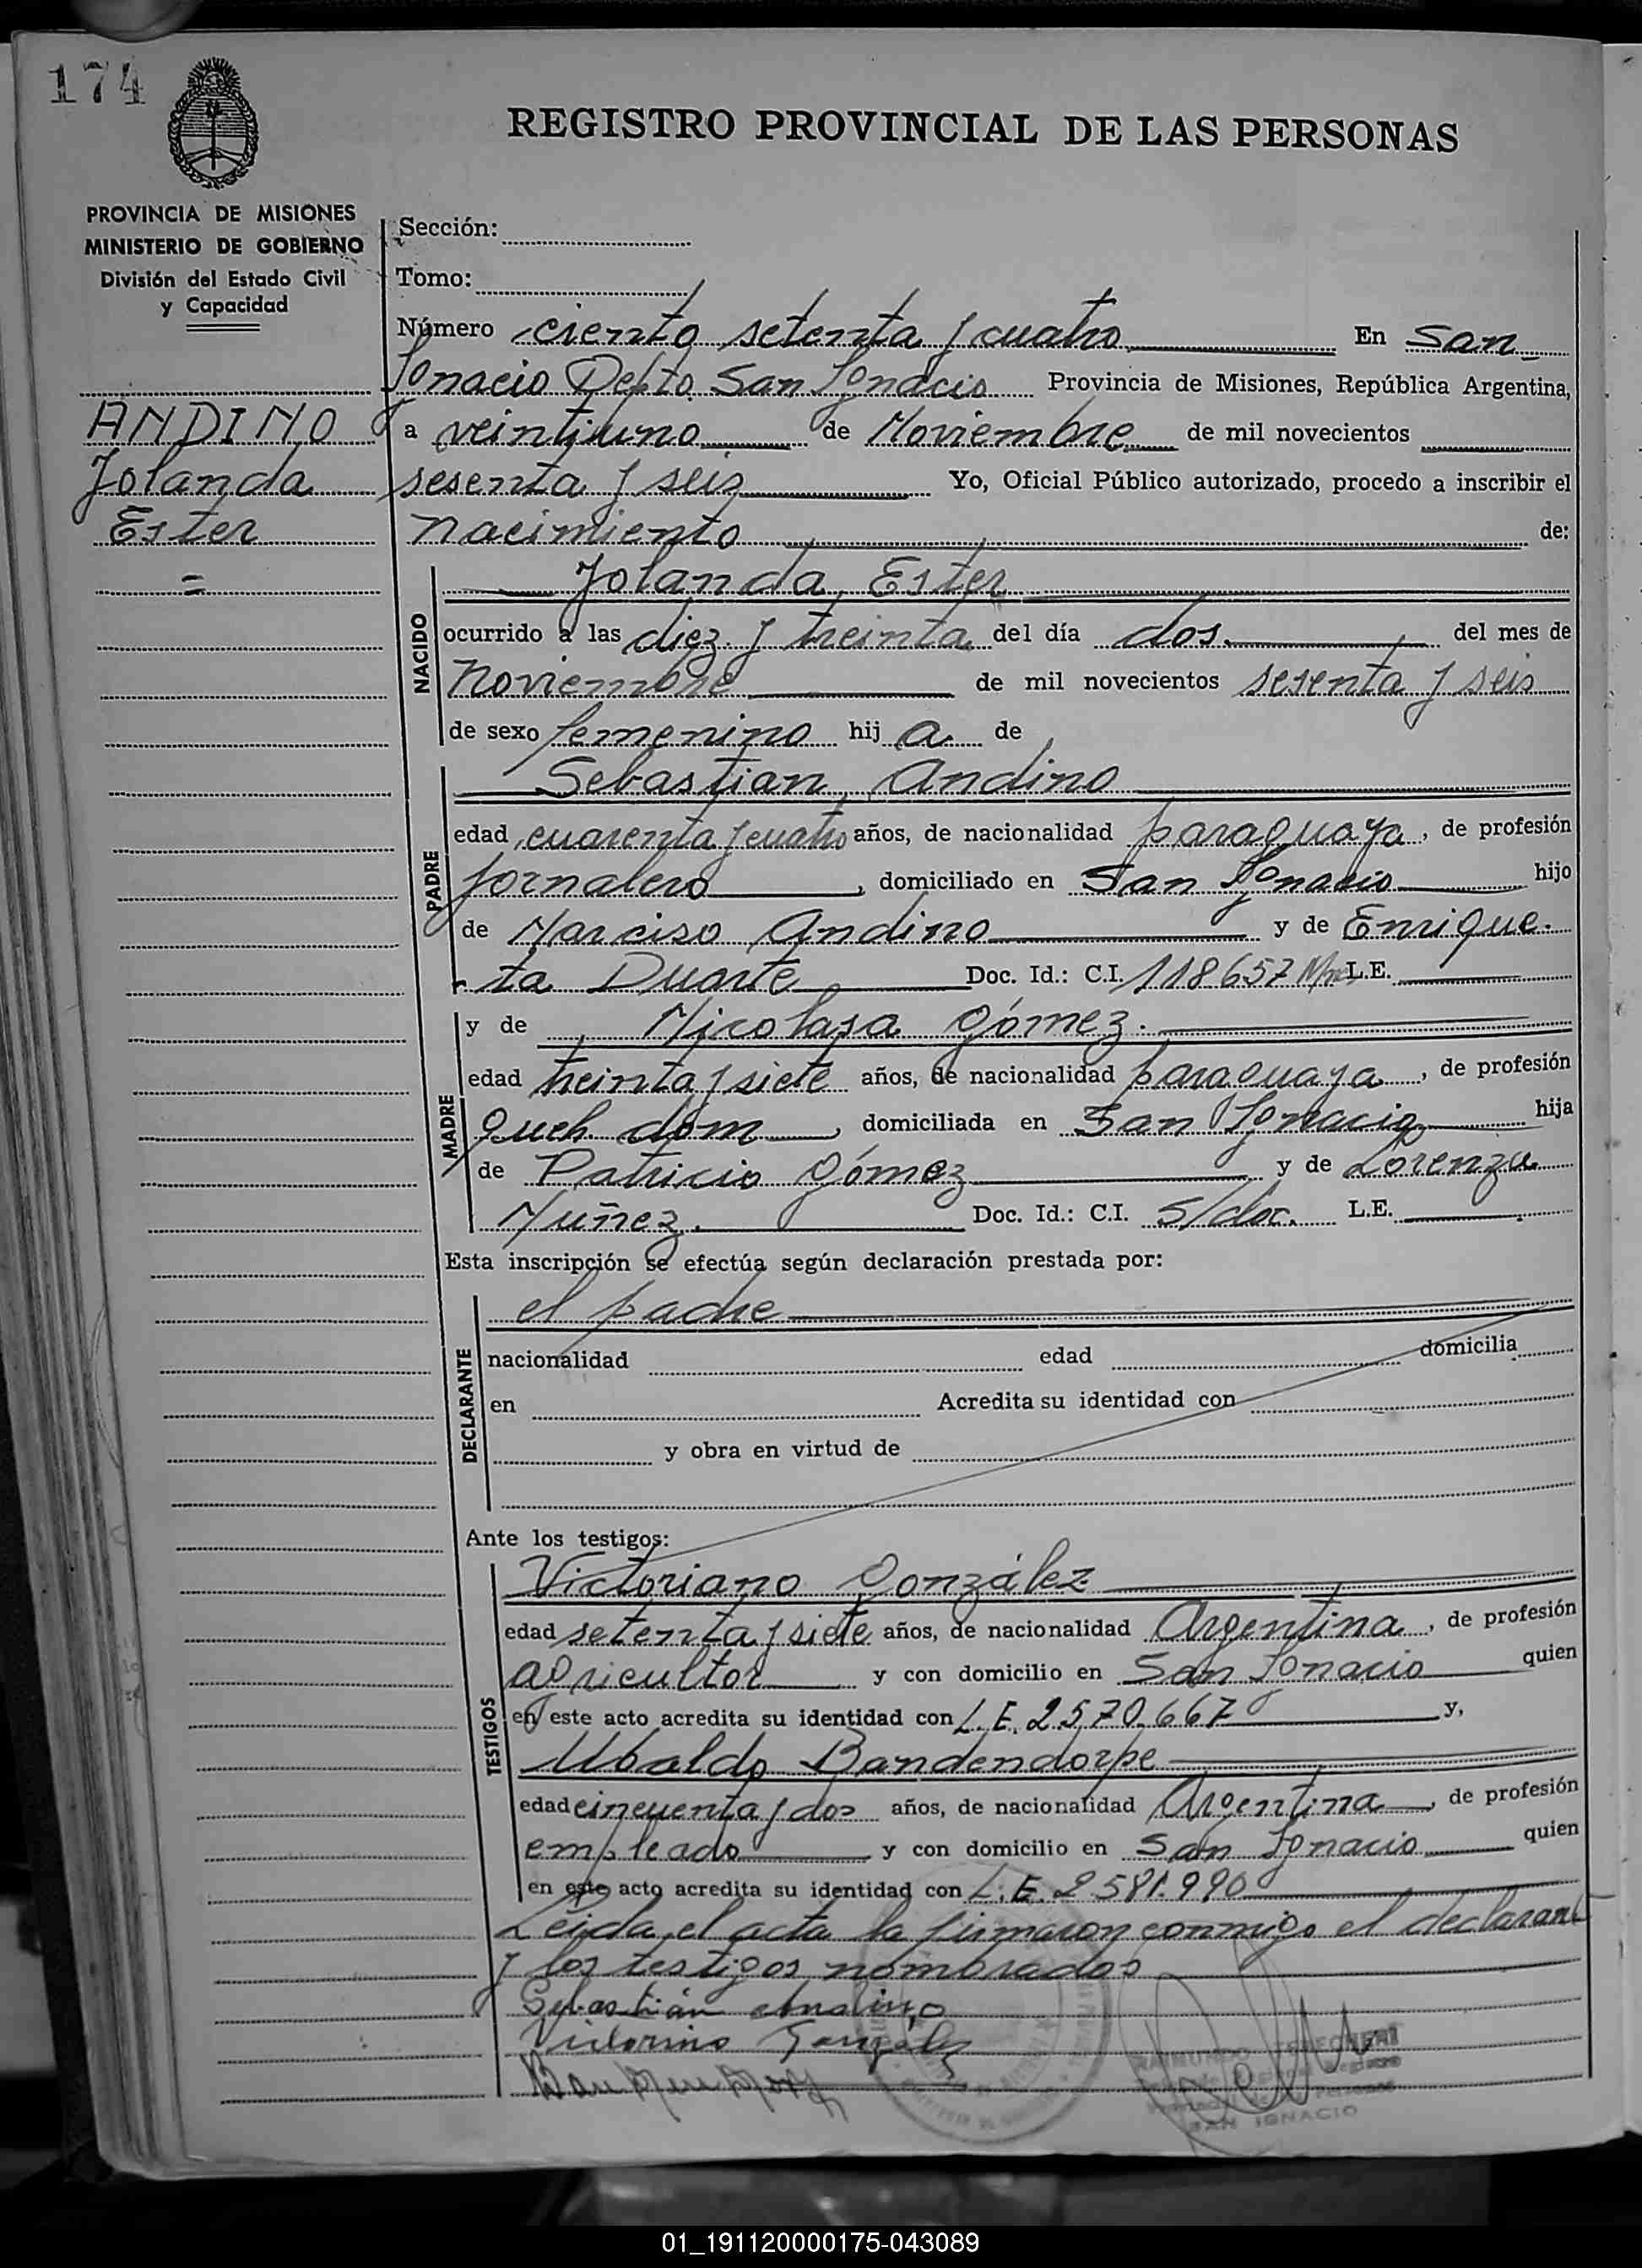 174
REGISTRO PROVINCIAL DE LAS PERSONAS
PROVINCIA DE MISIONES
MINISTERIO DE GOBIERNO
División del Estado Civil
y Capacidad
ANDINO
Yolanda
Ester
=
Sección:
Tomo:
Número ciento setenta y cuatro En San
Ignacio Depto. San Ignacio Provincia de Misiones, República Argentina,
a veintiuno de Noviembre de mil novecientos
sesenta y seis Yo, Oficial Público autorizado, procedo a inscribir el
nacimiento de:
NACIDO
Yolanda, Ester
ocurrido a las diez y treinta del día dos del mes de
Noviembre de mil novecientos sesenta y seis
de sexo femenino hij a de
PADRE
Sebastian, Andino
edad cuarenta y cuatro años, de nacionalidad paraguaya, de profesión
jornalero, domiciliado en San Ignacio hijo
de Narciso Andino y de Enrique-
ta Duarte Doc. Id.: C.I. 118657 L.E.
MADRE
y de Nicolasa Gómez.
edad treinta y siete años, de nacionalidad paraguaya, de profesión
queh. dom, domiciliada en San Ignacio hija
de Patricio Gómez y de Lorenza
Nuñez. Doc. Id.: C.I. S/doc. L.E.
Esta inscripción se efectúa según declaración prestada por:
DECLARANTE
el padre
nacionalidad edad domicilia
en Acredita su identidad con
y obra en virtud de
Ante los testigos:
TESTIGOS
Victoriano González
edad setenta y siete años, de nacionalidad Argentina, de profesión
agricultor y con domicilio en San Ignacio quien
en este acto acredita su identidad con L.E. 2.570.667 y,
Ubaldo Bandendorpe
edad cincuenta y dos años, de nacionalidad Argentina, de profesión
empleado y con domicilio en San Ignacio quien
en este acto acredita su identidad con L.E. 2.581.990
Leida el acta la firmaron conmigo el declarante
y los testigos nombrados
Sebastián Andino
SAN IGNACIO
01_191120000175-043089